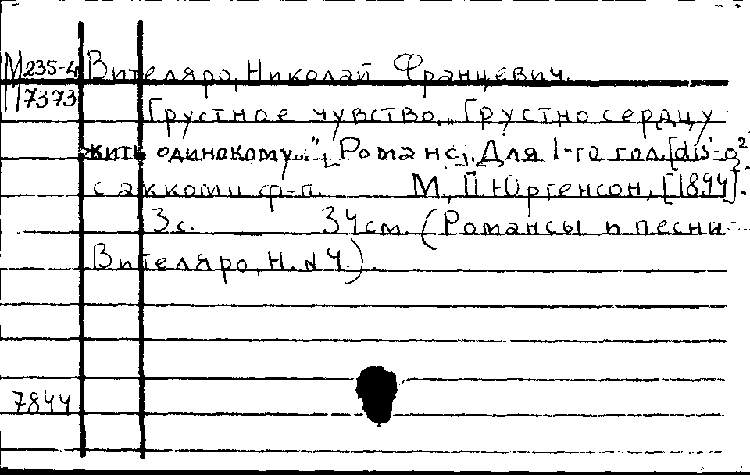 М 235-4
7373
Вителяро, Николай Францевич.
Грустное чувство. „Грустно сердцу
жить одинокому..." Романс. Для 1-го гол. [dis'-g²]
с акком. ф-п. М., П. Юргенсон, [1894].
3 с. 34 см. (Романсы и песни
Вителяро, Н. № 4).
7844